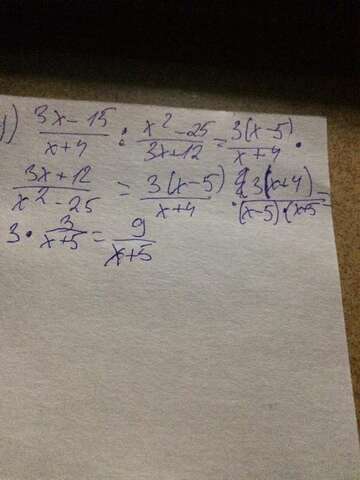 1) \frac{3x-15}{x+4} : \frac{x^2-25}{3x+12} = \frac{3(x-5)}{x+4} \cdot
\frac{3x+12}{x^2-25} = \frac{3(x-5)}{x+4} \cdot \frac{3(x+4)}{(x-5) \cdot (x+5} =
3 \cdot \frac{3}{x+5} = \frac{9}{x+5}